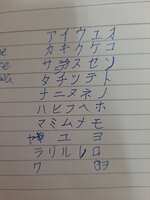 アイウエオ
カキクケコ
サシスセソ
タチツテト
ナニヌネノ
ハヒフヘホ
マミムナモ
ヤ ユ ヨ
ラリルレロ
ワ